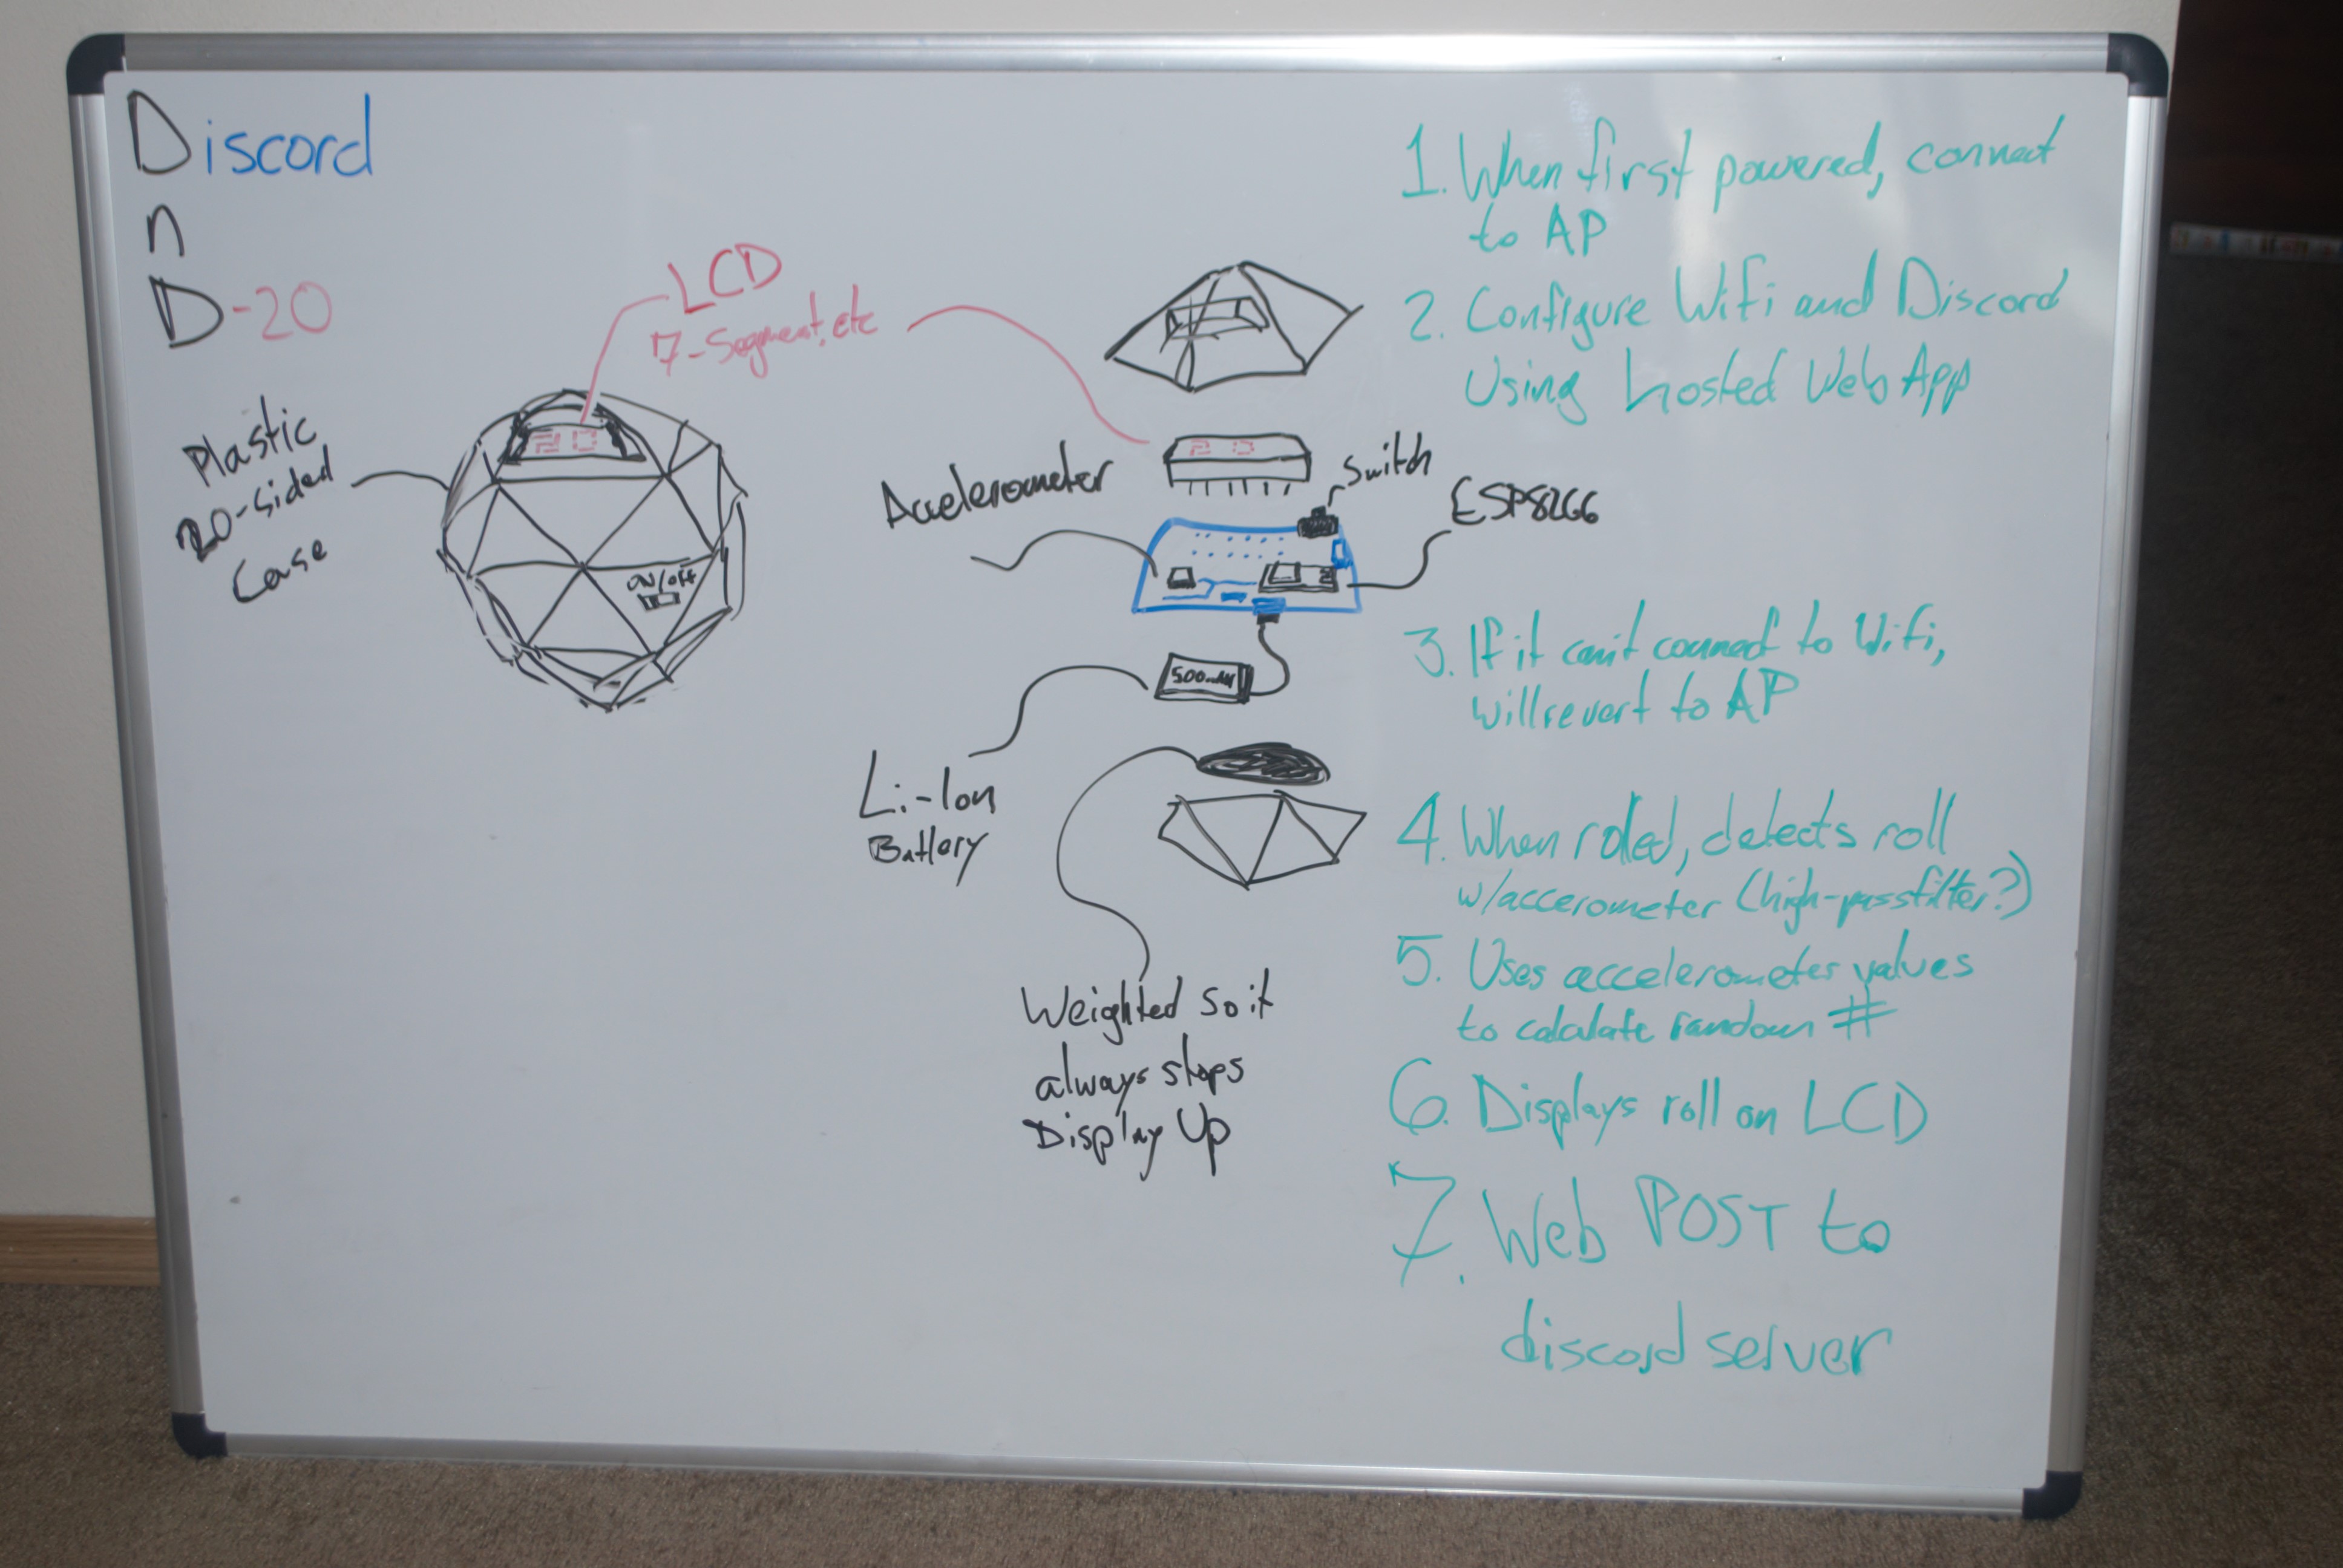 Discord
n
D-20
LCD
7-Segment, etc
Plastic
20-sided
Case
20
ON/OFF
20
Accelerometer
Switch
ESP8266
500mAH
Li-Ion
Battery
Weighted so it
always stops
Display Up
1. When first powered, connect
to AP
2. Configure Wifi and Discord
Using hosted Web App
3. If it can't connect to Wifi,
will revert to AP
4. When roled, detects roll
w/accerometer (high-pass filter?)
5. Uses accelerometer values
to calculate random #
6. Displays roll on LCD
7. Web POST to
discord server